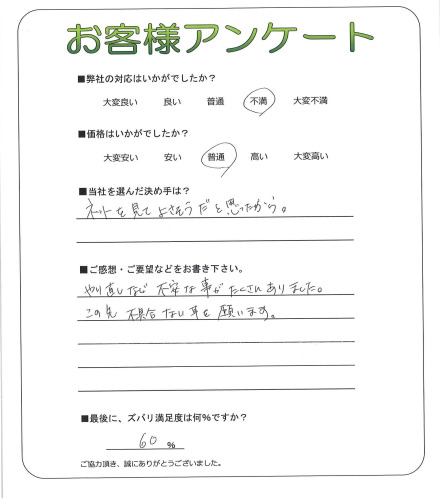 お客様アンケート
■弊社の対応はいかがでしたか?
大変良い 良い 普通 不満 大変不満
■価格はいかがでしたか?
大変安い 安い 普通 高い 大変高い
■当社を選んだ決め手は?
ネットを見てよさそうだと思ったから。
■ご感想・ご要望などをお書き下さい。
やり直しなど 不安な事がたくさんありました。
この先 不具合ない事を願います。
■最後に、ズバリ満足度は何%ですか?
60 %
ご協力頂き、誠にありがとうございました。